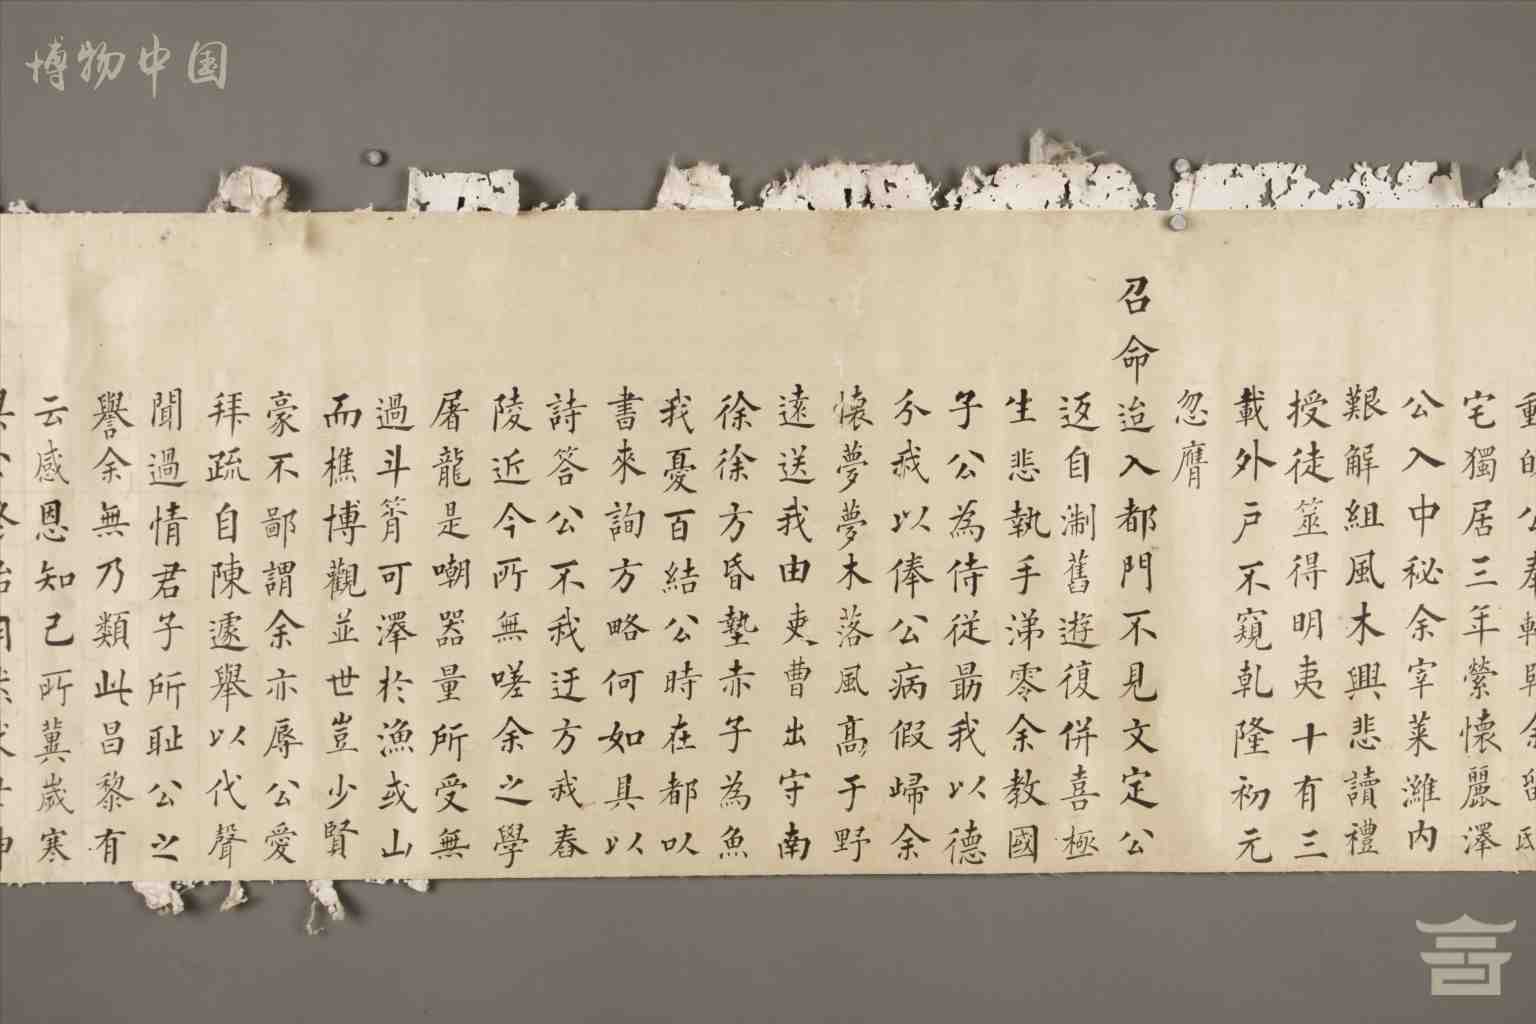 博物中国
宅獨居三年縈懷麗澤
公入中秘余宰萊濰内
艱解組風木興悲讀禮
授徒筮得明夷十有三
載外戶不窺乾隆初元
忽膺
召命迨入都門不見文定公
返自淛舊遊復併喜極
生悲執手涕零余教國
子公為侍從最我以德
分我以俸公病假歸余
懷夢夢木落風高于野
遠送我由吏曹出守南
徐徐方昏墊赤子為魚
我憂百結公時在都以
書來詢方略何如具以
詩答公不我迂方我舂
陵近今所無嗟余之學
屠龍是嘲器量所受無
過斗筲可澤於漁或山
而樵博觀並世豈少賢
豪不鄙謂余亦辱公愛
拜疏自陳遽舉以代聲
聞過情君子所恥公之
譽余無乃類此昌黎有
云感恩知己所冀歲寒